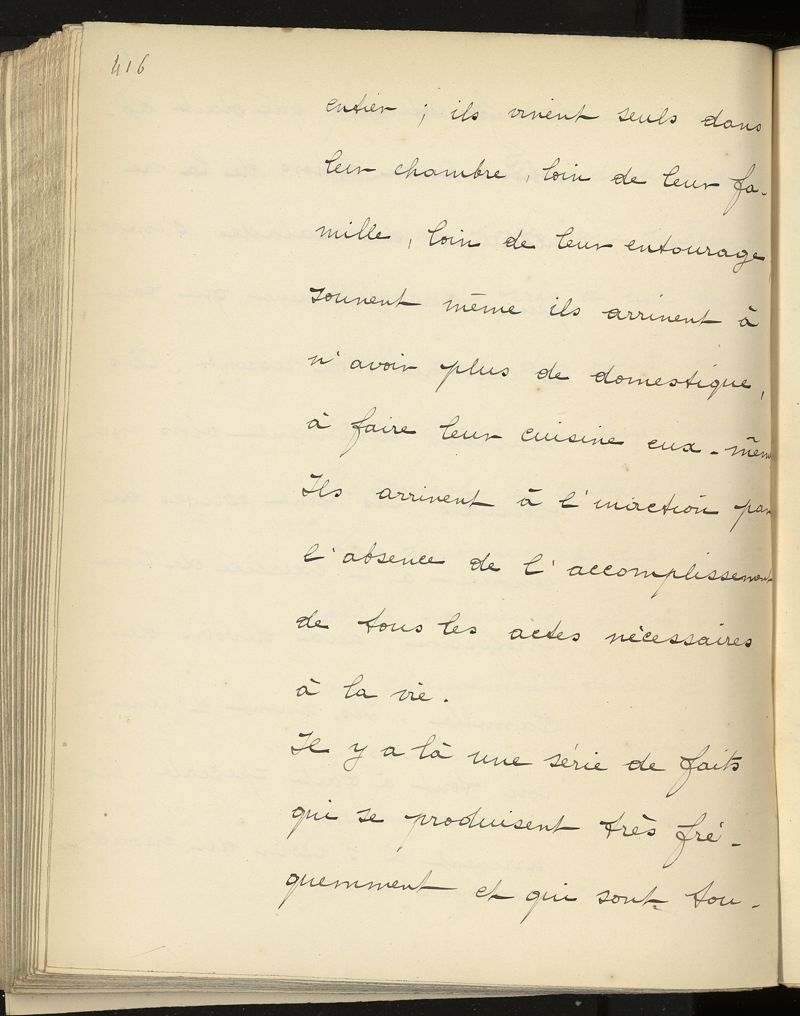 416
entier ; ils vivent seuls dans
leur chambre, loin de leur fa-
mille, loin de leur entourage
souvent même ils arrivent à
n'avoir plus de domestique,
à faire leur cuisine eux-mêm
Ils arrivent à l'inaction par
l'absence de l'accomplissement
de tous les actes nécessaires
à la vie.
Il y a là une série de faits
qui se produisent très fré-
quemment et qui sont tou-